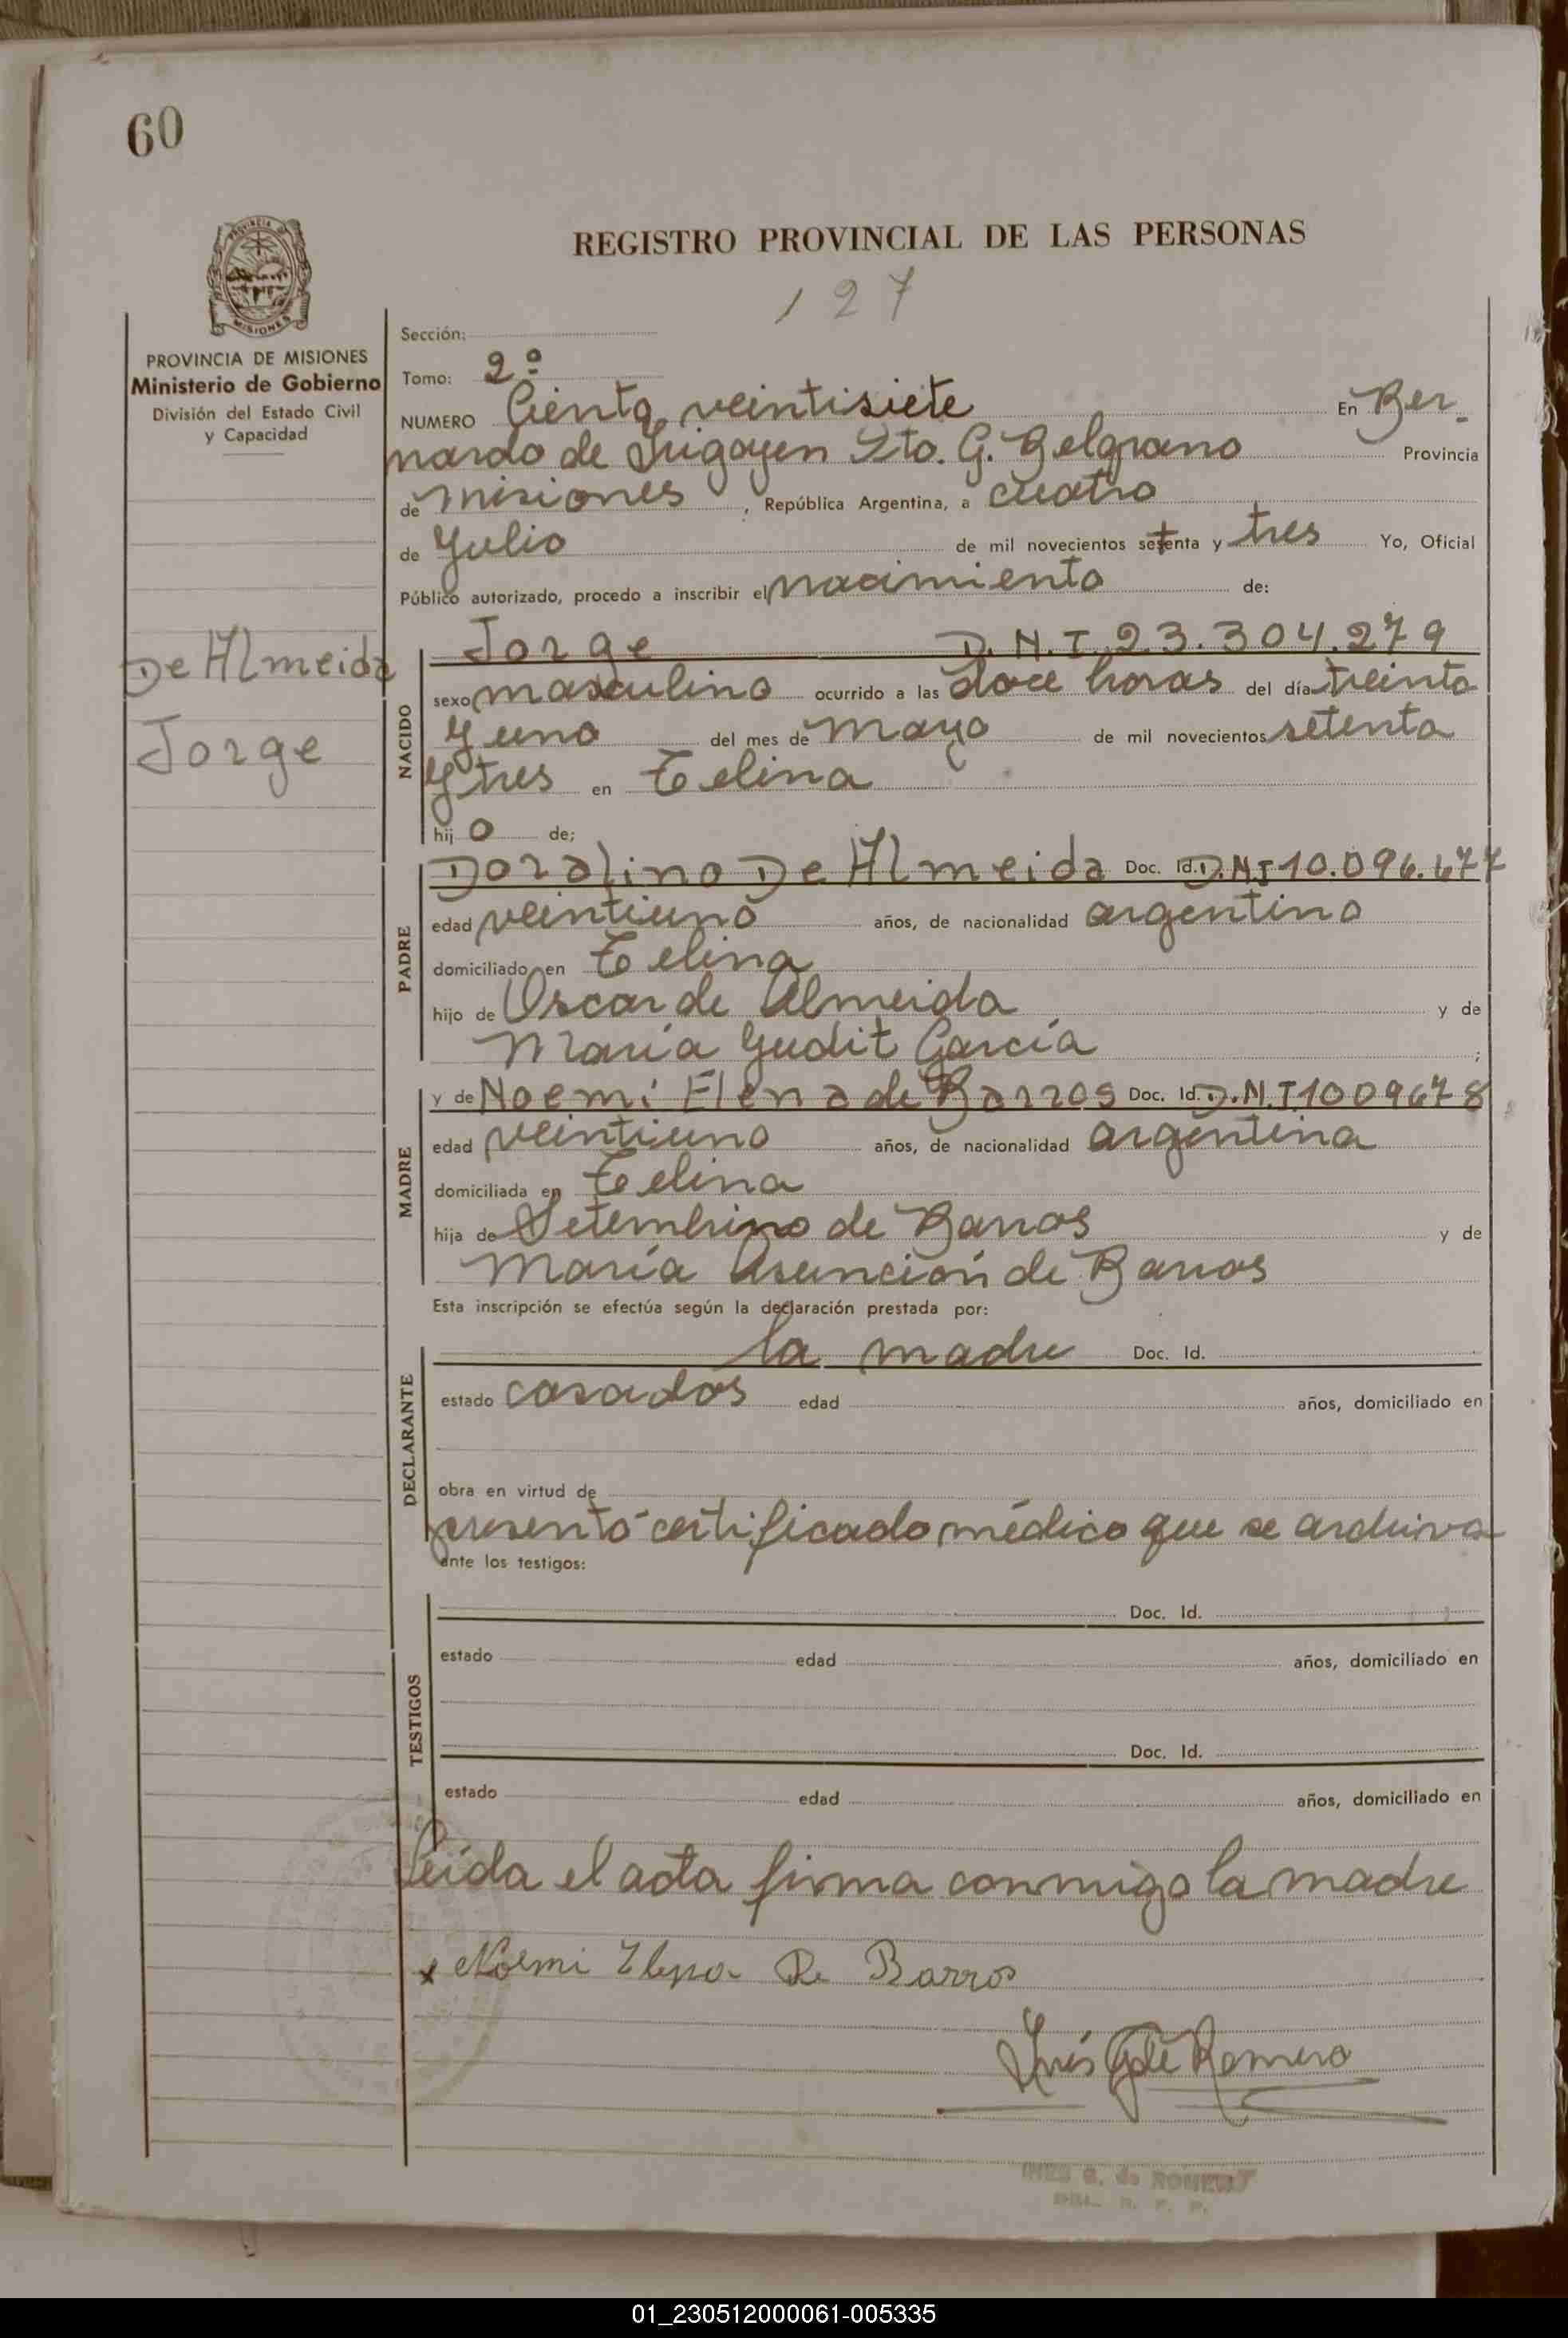 60
REGISTRO PROVINCIAL DE LAS PERSONAS
127
MISIONES
PROVINCIA DE MISIONES
Ministerio de Gobierno
División del Estado Civil
y Capacidad
De Almeida
Jorge
Sección:
Tomo: 2º
NUMERO Ciento veintisiete En Ber-
nardo de Irigoyen Dto. G. Belgrano Provincia
de Misiones, República Argentina, a cuatro
de Julio de mil novecientos setenta y tres Yo, Oficial
Público autorizado, procedo a inscribir el nacimiento de:
NACIDO
Jorge D.N.I. 23.304.279
sexo masculino ocurrido a las doce horas del día treinta
y uno del mes de mayo de mil novecientos setenta
y tres en Celina
hijo de;
PADRE
Doralino De Almeida Doc. Id. D.N.I 10.096.677
edad veintiuno años, de nacionalidad argentino
domiciliado en Celina
hijo de Oscar de Almeida y de
María Yudit García ;
MADRE
y de Noemi Elena de Barros Doc. Id. D.N.I. 1009678
edad veintiuno años, de nacionalidad argentina
domiciliada en Celina
hija de Setembrino de Barros y de
María Asunción de Barros
Esta inscripción se efectúa según la declaración prestada por:
DECLARANTE
la madre Doc. Id.
estado casados edad años, domiciliado en
obra en virtud de
presentó certificado médico que se archiva
ante los testigos:
TESTIGOS
Doc. Id.
estado edad años, domiciliado en
Doc. Id.
estado edad años, domiciliado en
Leída el acta firma conmigo la madre
x Noemi Elena De Barros
Inés G de Romero
INES G. de ROMERO
DEL. R. P. P.
01_230512000061-005335